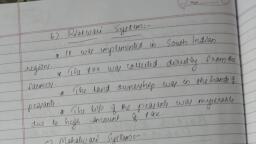 b) Ryotwari System:-
* It was implemented in South Indian
regions. * The tax was collected directly from the
farmers * The land ownership was in the hands of
peasants * The life of the peasants was miserable
due to high amount of tax
c) Mahalwari System:-